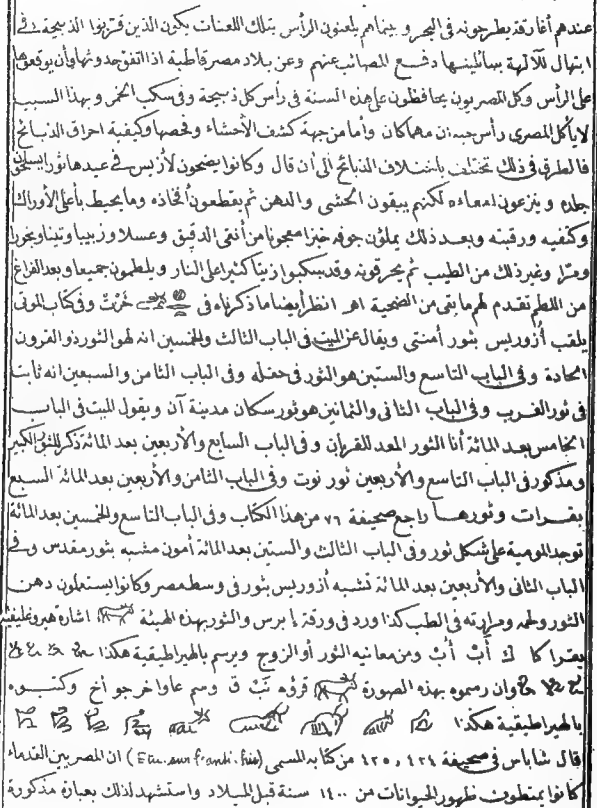 عندهم أغارقة يطرحونه فى البحر وبينما هم يلعنون الرأس بتلك اللعنات يكون الذين قربوا الذبيحة فى
ابتهال للآلهة يسائلينها دفع المصائب عنهم وعن بلاد مصر قاطبة اذا اتفق حدوثها وأن يوقعوها
على الرأس وكل المصريون يحافظون على هذه السنة فى رأس كل ذبيحة وفى سكب الخمر وبهذا السبب
لا يأكل المصرى رأس حيوان مهما كان وأما من جهة كشف الأحشاء وفحصها وكيفية احراق الذبائح
فالطرق فى ذلك تختلف باختلاف الذبائح الى أن قال وكانوا يضحون لازيس فى عيدها ثورا يسلخون
جلده وينزعون امعاءه لكنهم يبقون الحشى والدهن ثم يقطعون أفخاذه وما يحيط بأعلى الأوراك
وكتفيه ورقبته وبعد ذلك يملئون جوفه خبزا معجونا من أنقى الدقيق وعسلا وزبيبا وتينا وبخورا
ومرا وغير ذلك من الطيب ثم يحرقونه وقد سكبوا زيتا كثيرا على النار ويلطمون جميعا وبعد الفراغ
من اللطم تقدم لهم ما بقى من الضحية اهـ انظر أيضا ما ذكرناه فى وفى كتاب الموتى
يلقب أزوريس بثور أمنتى ويقال عن الميت فى الباب الثالث والخمسين انه لهو الثور ذو القرون
الحادة وفى الباب التاسع والستين هو الثور فى حقله وفى الباب الثامن والسبعين انه ثابت
فى ثور الغرب وفى الباب الثانى والثمانين هو ثور سكان مدينة آن ويقول الميت فى الباب
الخامس بعد المائة أنا الثور المعد للقربان وفى الباب السابع والأربعين بعد المائة ذكر للثور الكبير
ومذكور فى الباب التاسع والأربعين ثور نوت وفى الباب الثامن والأربعين بعد المائة السبع
بقرات وثورها راجع صحيفة ٧٦ من هذا الكتاب وفى الباب التاسع والخمسين بعد المائة
توجد المومية على شكل ثور وفى الباب الثالث والستين بعد المائة أمون مشبه بثور مقدس وفى
الباب الثانى والأربعين بعد المائة تشبه أزوريس بثور فى وسط مصر وكانوا يستعملون دهن
الثور ولحمه ومرارته فى الطب كذا ورد فى ورقة إبرس والثور بهذه الهيئة اشارة هيروغليفية
يقرا كا ك أب أب ومن معانيه الثور أو الزوج ويرسم بالهيراطيقية هكذا
وان رسموه بهذه الصورة قرؤه تب ق وسم عاوا خرجو أخ وكتبوه
بالهيراطيقية هكذا
قال شاباس فى صحيفة ٤٢٤ ، ٤٢٥ من كتابه المسمى (Etu. sur l'anti. his) ان المصريين القدماء
كانوا يمتطون ظهور الحيوانات من ١٤٠٠ سنة قبل الميلاد واستشهد لذلك بعبارة مذكورة